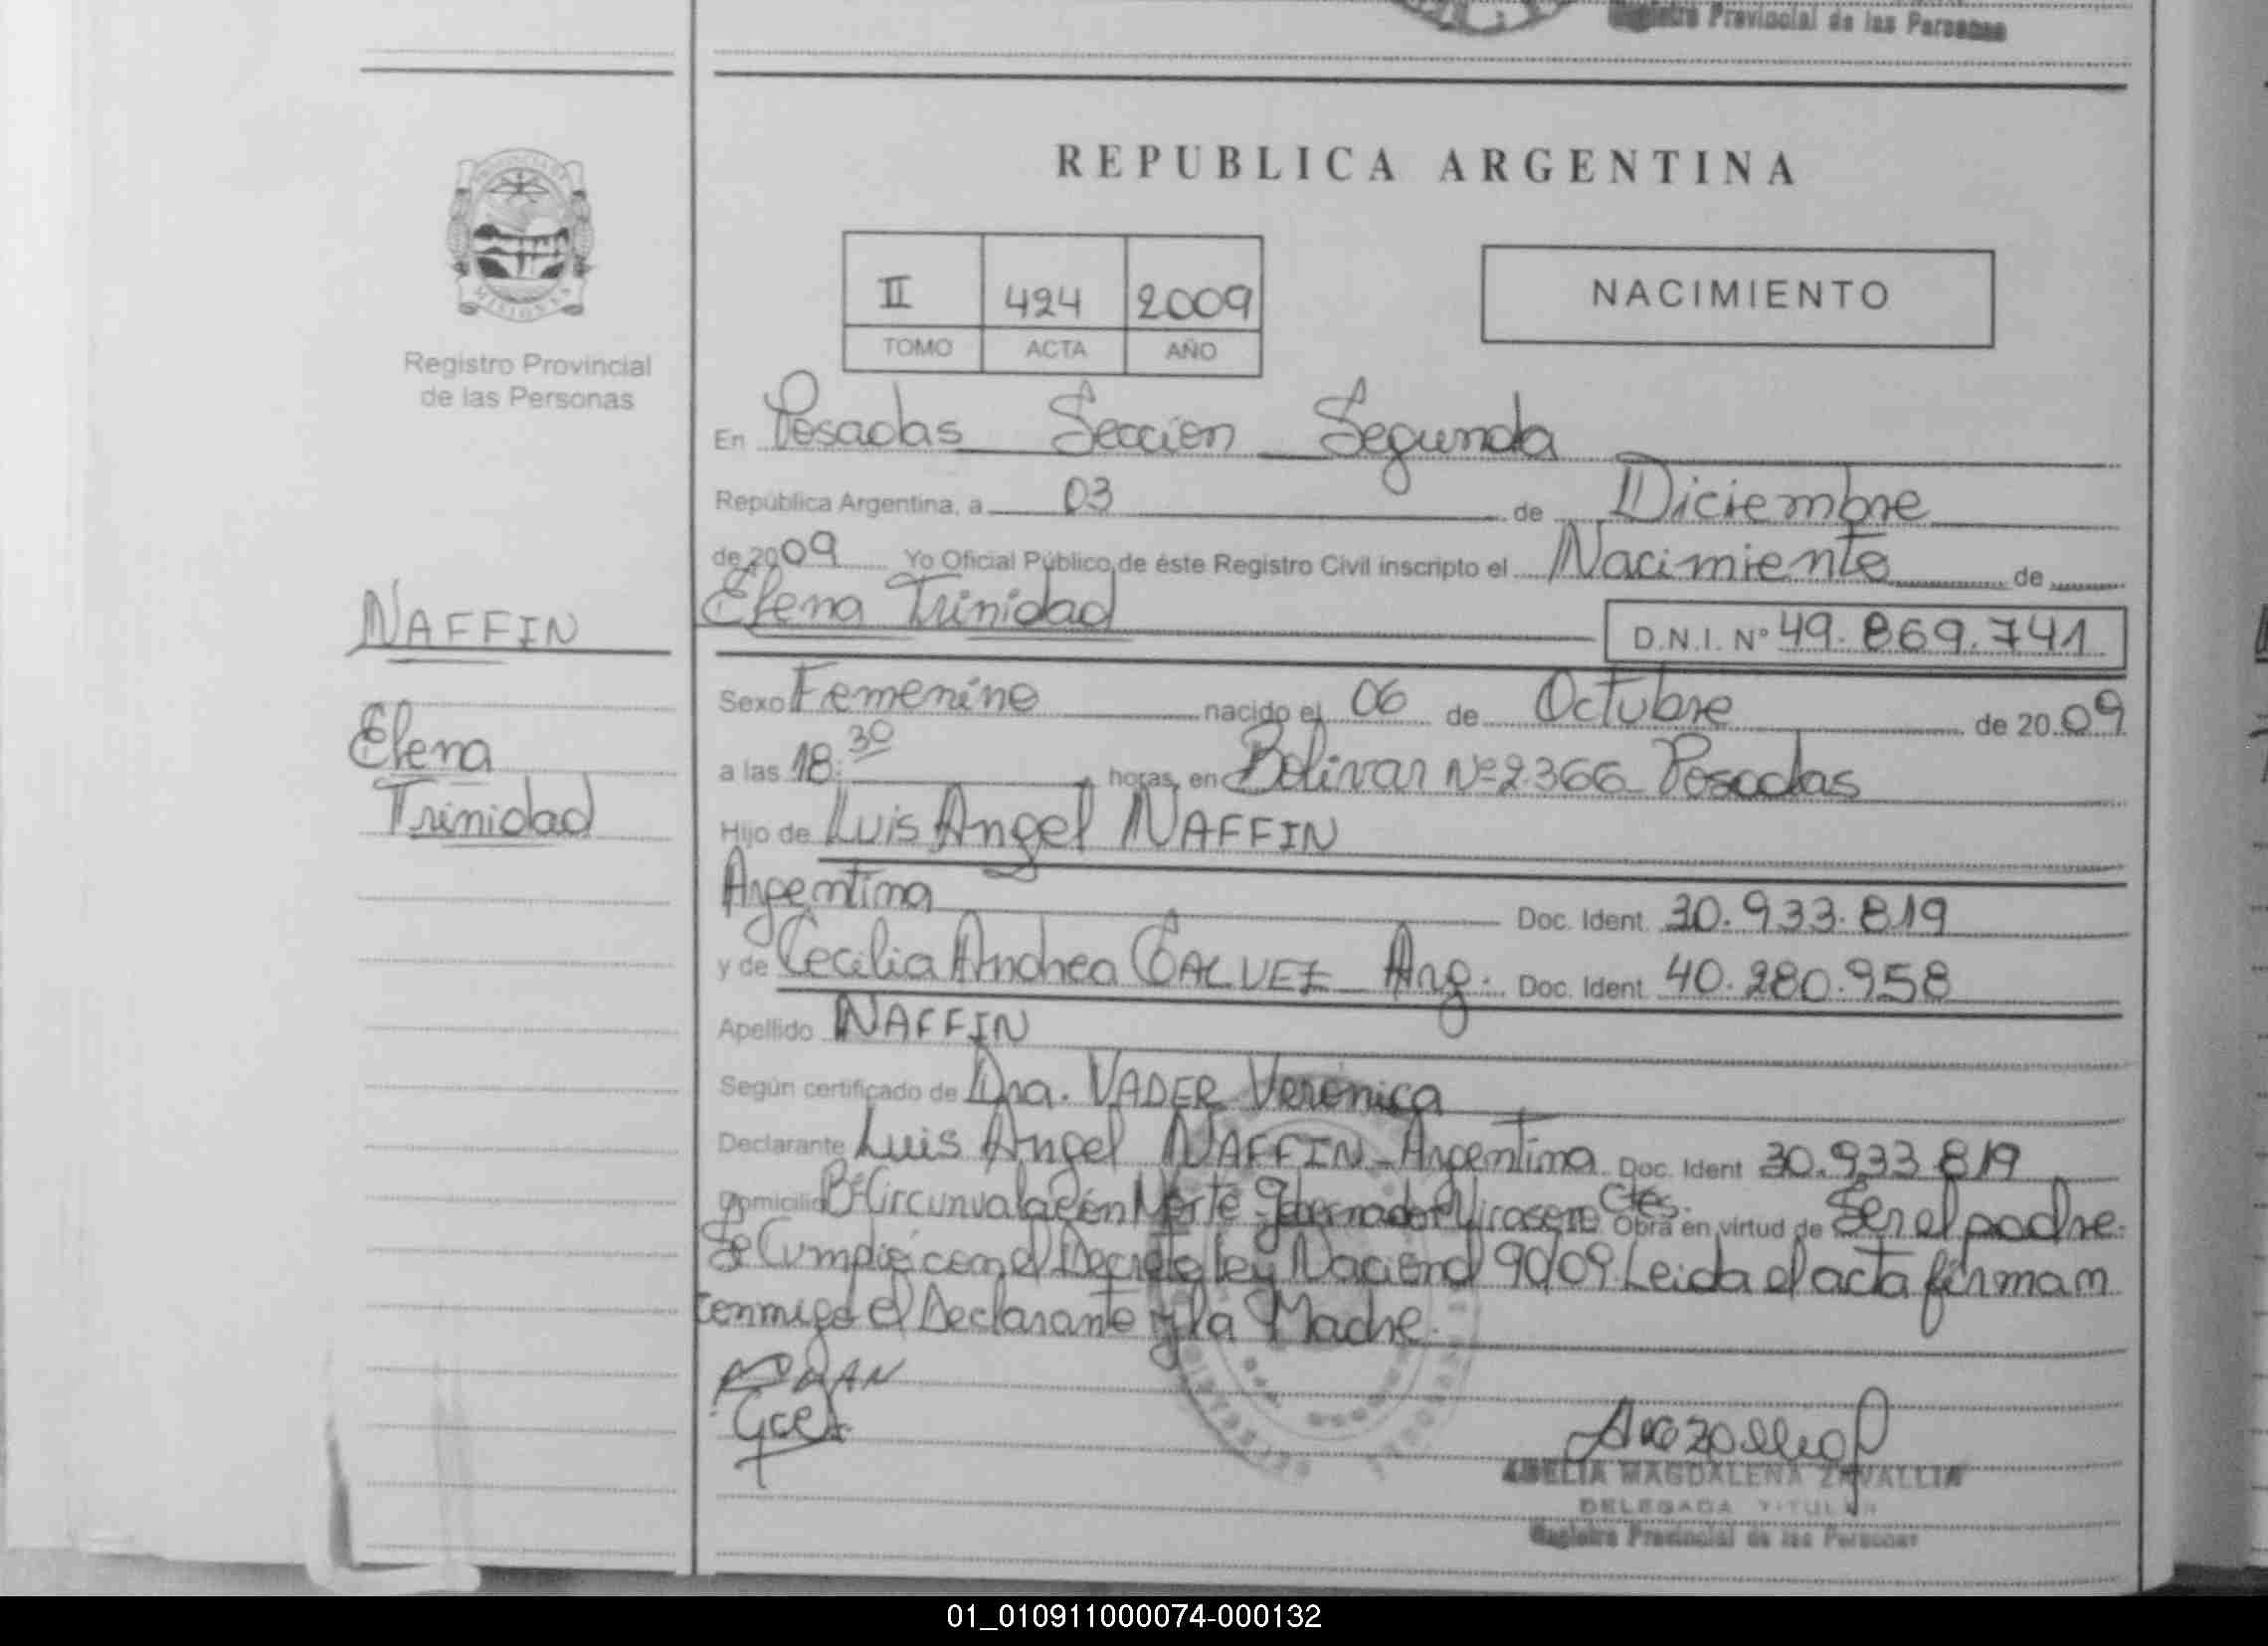 Registro Provincial de las Personas
REPUBLICA ARGENTINA
II 424 2009
TOMO ACTA AÑO
NACIMIENTO
MISIONES
Registro Provincial
de las Personas
En Posadas Seccion Segunda
República Argentina, a 03 de Diciembre
de 2009 Yo Oficial Público de éste Registro Civil inscripto el Nacimiento de
Elena Trinidad
D.N.I. Nº 49.869.741
NAFFIN
Elena
Trinidad
Sexo Femenino nacido el 06 de Octubre de 20 09
a las 18:30 horas, en Bolivar Nº 2366 Posadas
Hijo de Luis Angel NAFFIN
Argentina Doc. Ident. 30.933.819
y de Cecilia Andrea GALVEZ Arg. Doc. Ident. 40.280.958
Apellido NAFFIN
Según certificado de Dra. VADER Verónica
Declarante Luis Angel NAFFIN - Argentina Doc. Ident 30.933.819
Domicilio Bº Circunvalación Norte - Gobernador Virasoro Ctes. Obra en virtud de Ser el padre.
Se Cumplió con el Decreto ley Nacional 90/09. Leida el acta firman
conmigo el Declarante y la Madre.
ABELIA MAGDALENA ZAVALLIA
DELEGADA TITULAR
Registro Provincial de las Personas
01_010911000074-000132